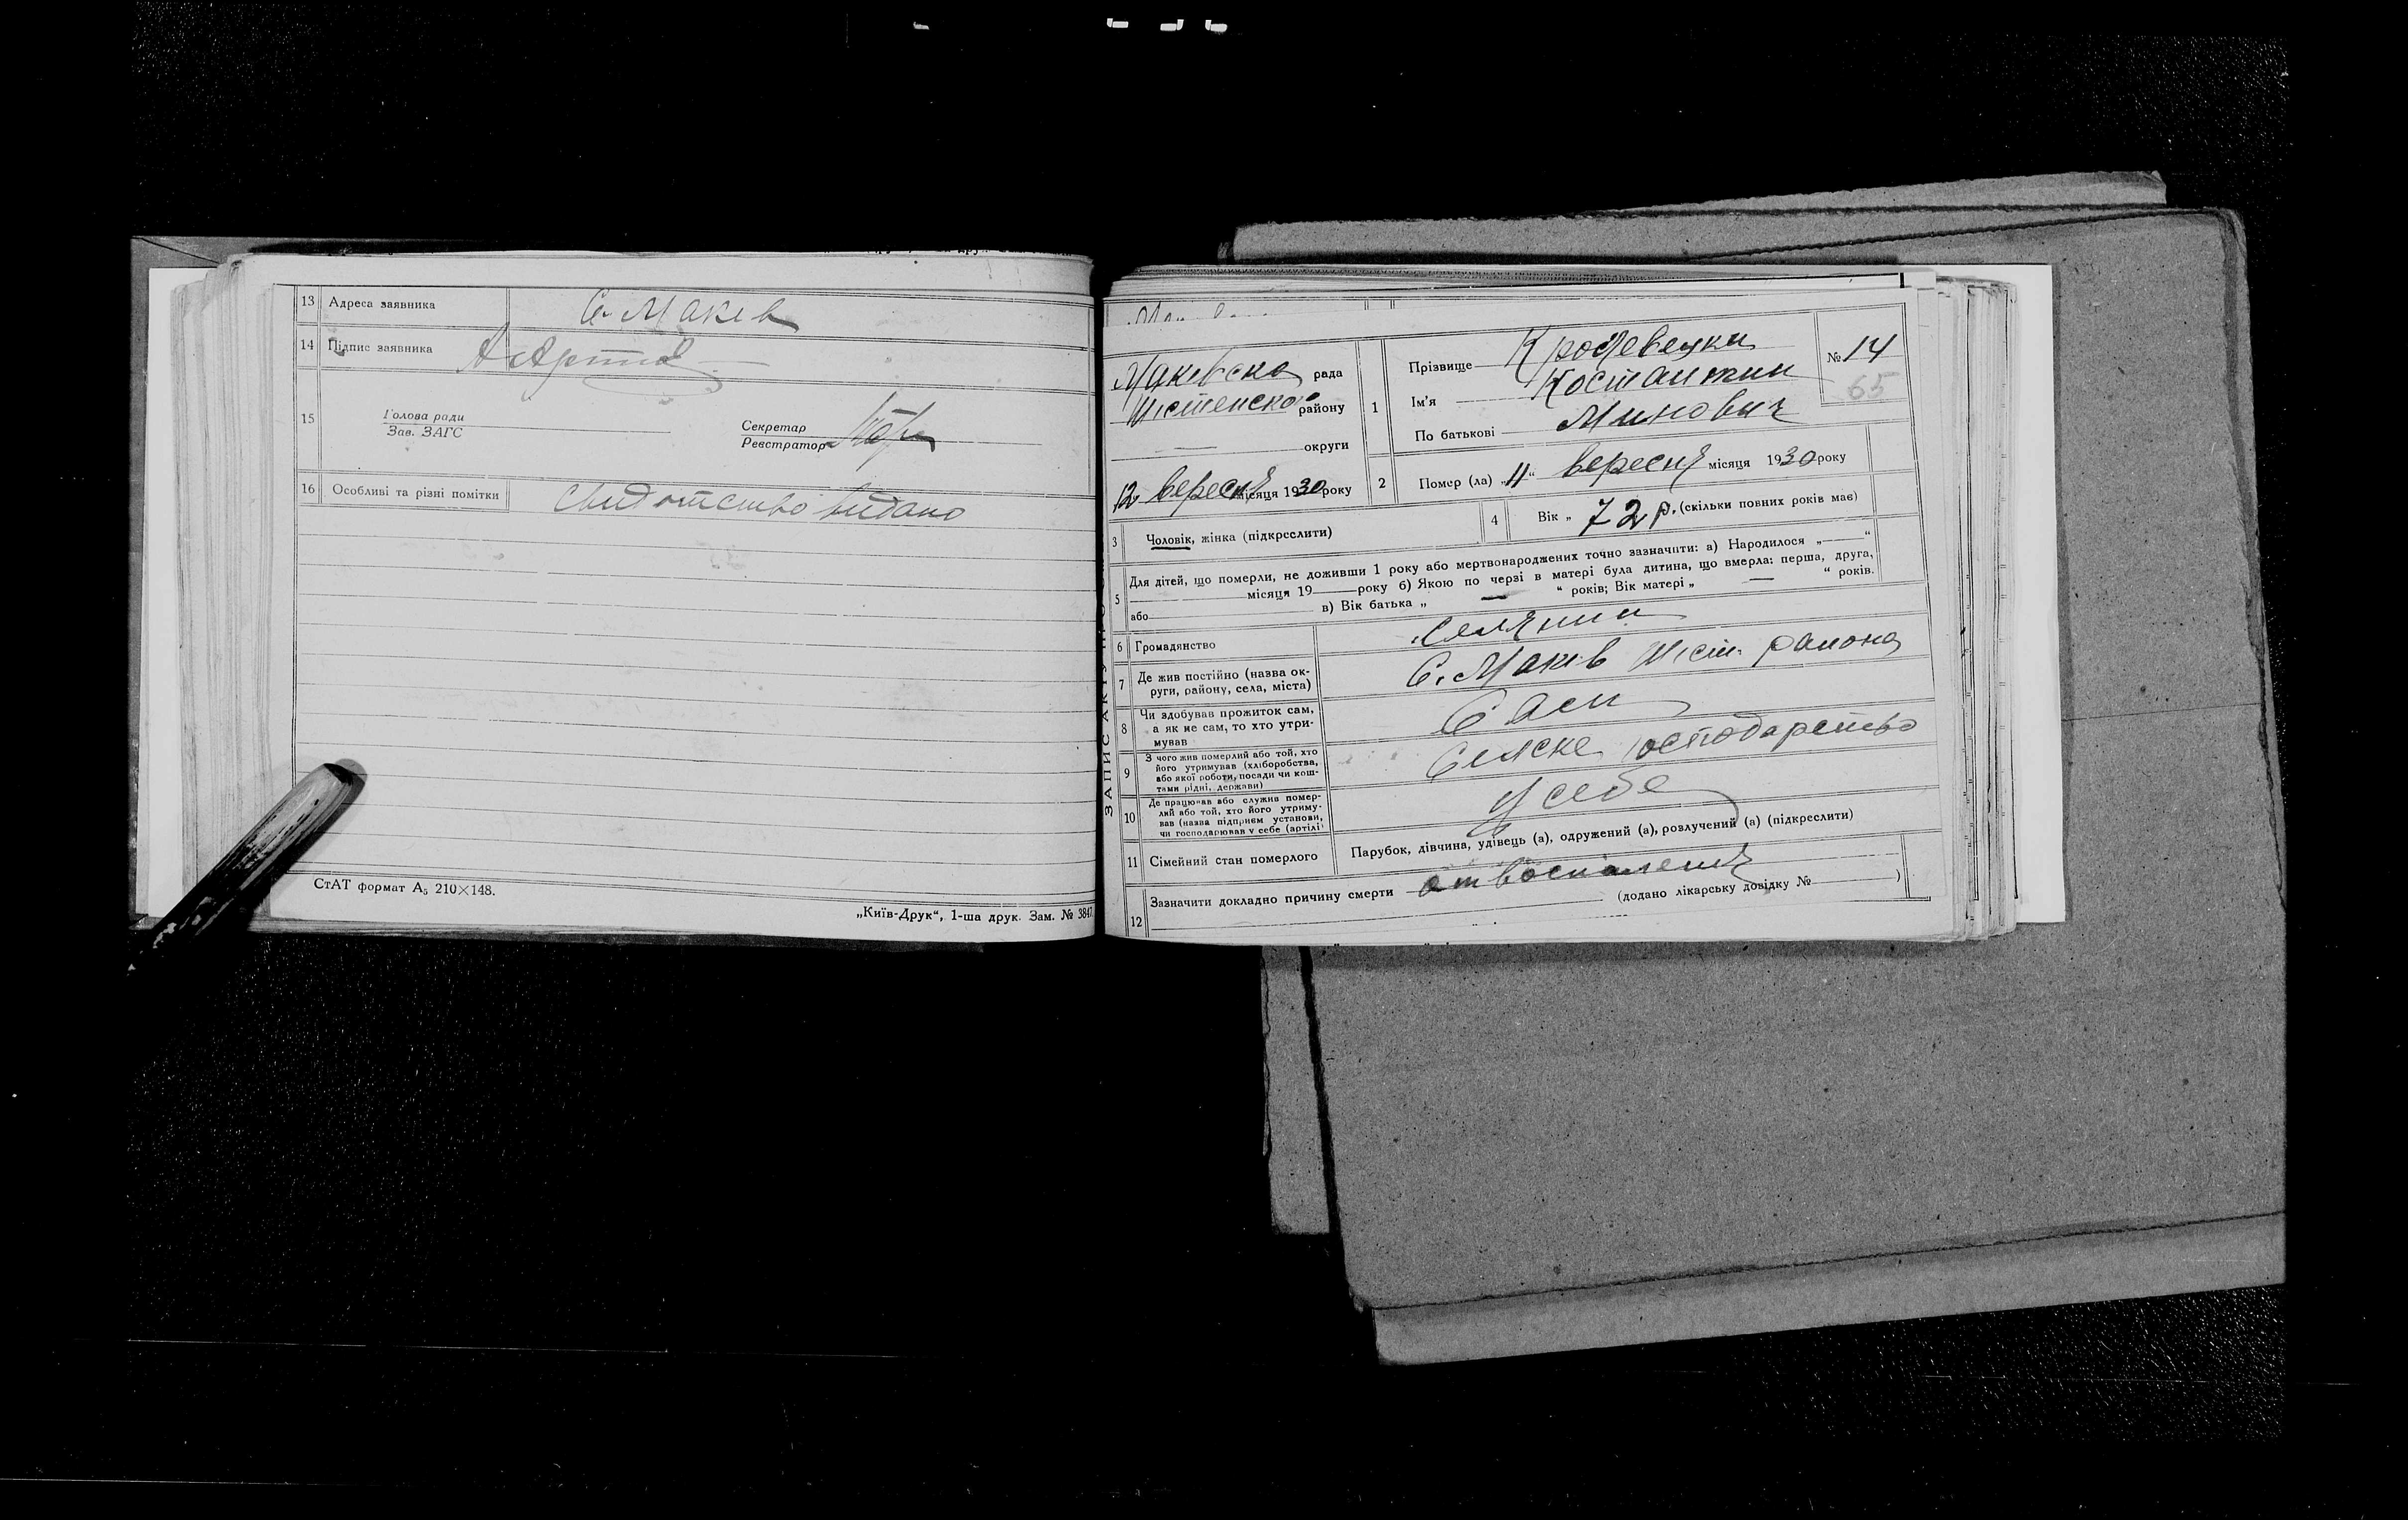 13 Адреса заявника С. Макев
14 Підпис заявника
15 Голова ради
Зав. ЗАГС
Секретар
Реєстратор
16 Особливі та різні помітки свидотство видано
СтАТ формат А₅ 210×148.
„Київ-Друк“, 1-ша друк. Зам. № 3847.
ЗАПИС АКТУ ПРО
Макевска рада
району
округи
12 вересня місяця 1930 року
1 Прізвище Кролевецки
Ім'я Костантин
По батькові Минович
№ 14
65
2 Помер (ла) „11“ вересня місяця 1930 року
3 Чоловік, жінка (підкреслити)
4 Вік „ 72 р. (скільки повних років має)
5 Для дітей, що померли, не доживши 1 року або мертвонароджених точно зазначити: а) Народилося „ “
місяця 19 року б) Якою по черзі в матері була дитина, що вмерла: перша, друга,
або в) Вік батька „ — “ років; Вік матері „ — “ років.
6 Громадянство селянин
7 Де жив постійно (назва ок-
руги, району, села, міста) С. Макев Шіст. района
8 Чи здобував прожиток сам,
а як не сам, то хто утри-
мував Сам
9 З чого жив померлий або той, хто
його утримував (хліборобства,
або якої роботи, посади чи кош-
тами рідні, держави) Селске господарство
10 Де працював або служив помер-
лий або той, хто його утриму-
вав (назва підприєм установи,
чи господарював у себе (артілі) У себе
11 Сімейний стан померлого Парубок, дівчина, удівець (а), одружений (а), розлучений (а) (підкреслити)
12 Зазначити докладно причину смерти от воспаления
(додано лікарську довідку № )